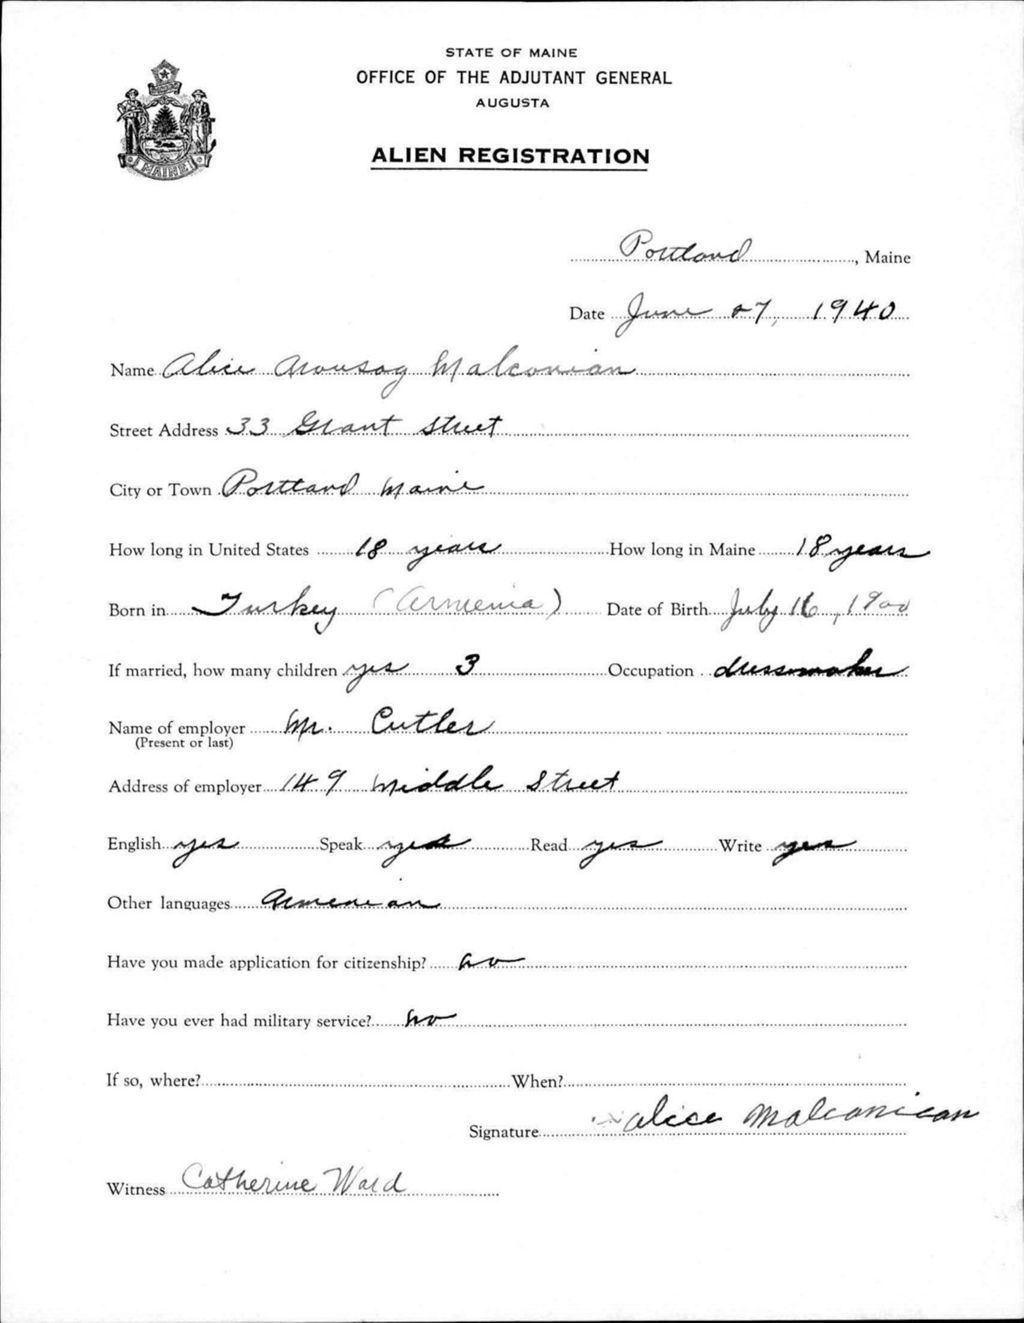 STATE OF MAINE
OFFICE OF THE ADJUTANT GENERAL
AUGUSTA
ALIEN REGISTRATION
MAINE
Portland, Maine
Date June 27, 1940
Name Alice Malconian
Street Address 33 Grant Street
City or Town Portland Maine
How long in United States 18 years How long in Maine 18 years
Born in Turkey (Armenia) Date of Birth July 16, 1900
If married, how many children yes 3 Occupation dressmaker
Name of employer Mr. Cutler
(Present or last)
Address of employer 149 Middle Street
English yes Speak yes Read yes Write yes
Other languages Armenian
Have you made application for citizenship? no
Have you ever had military service? no
If so, where? When?
Signature Alice Malconian
Witness Catherine Ward